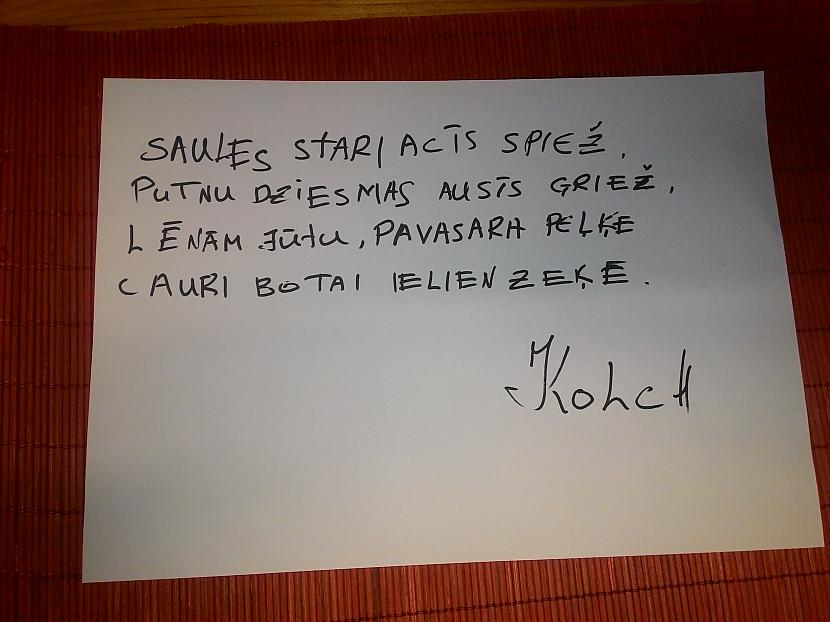 SAULES STARI ACĪS SPIEŽ,
PUTNU DZIESMAS AUSĪS GRIEŽ,
LĒNĀM JŪTU, PAVASARA PEĻĶE
CAURI BOTAI IELIEN ZEĶĒ.